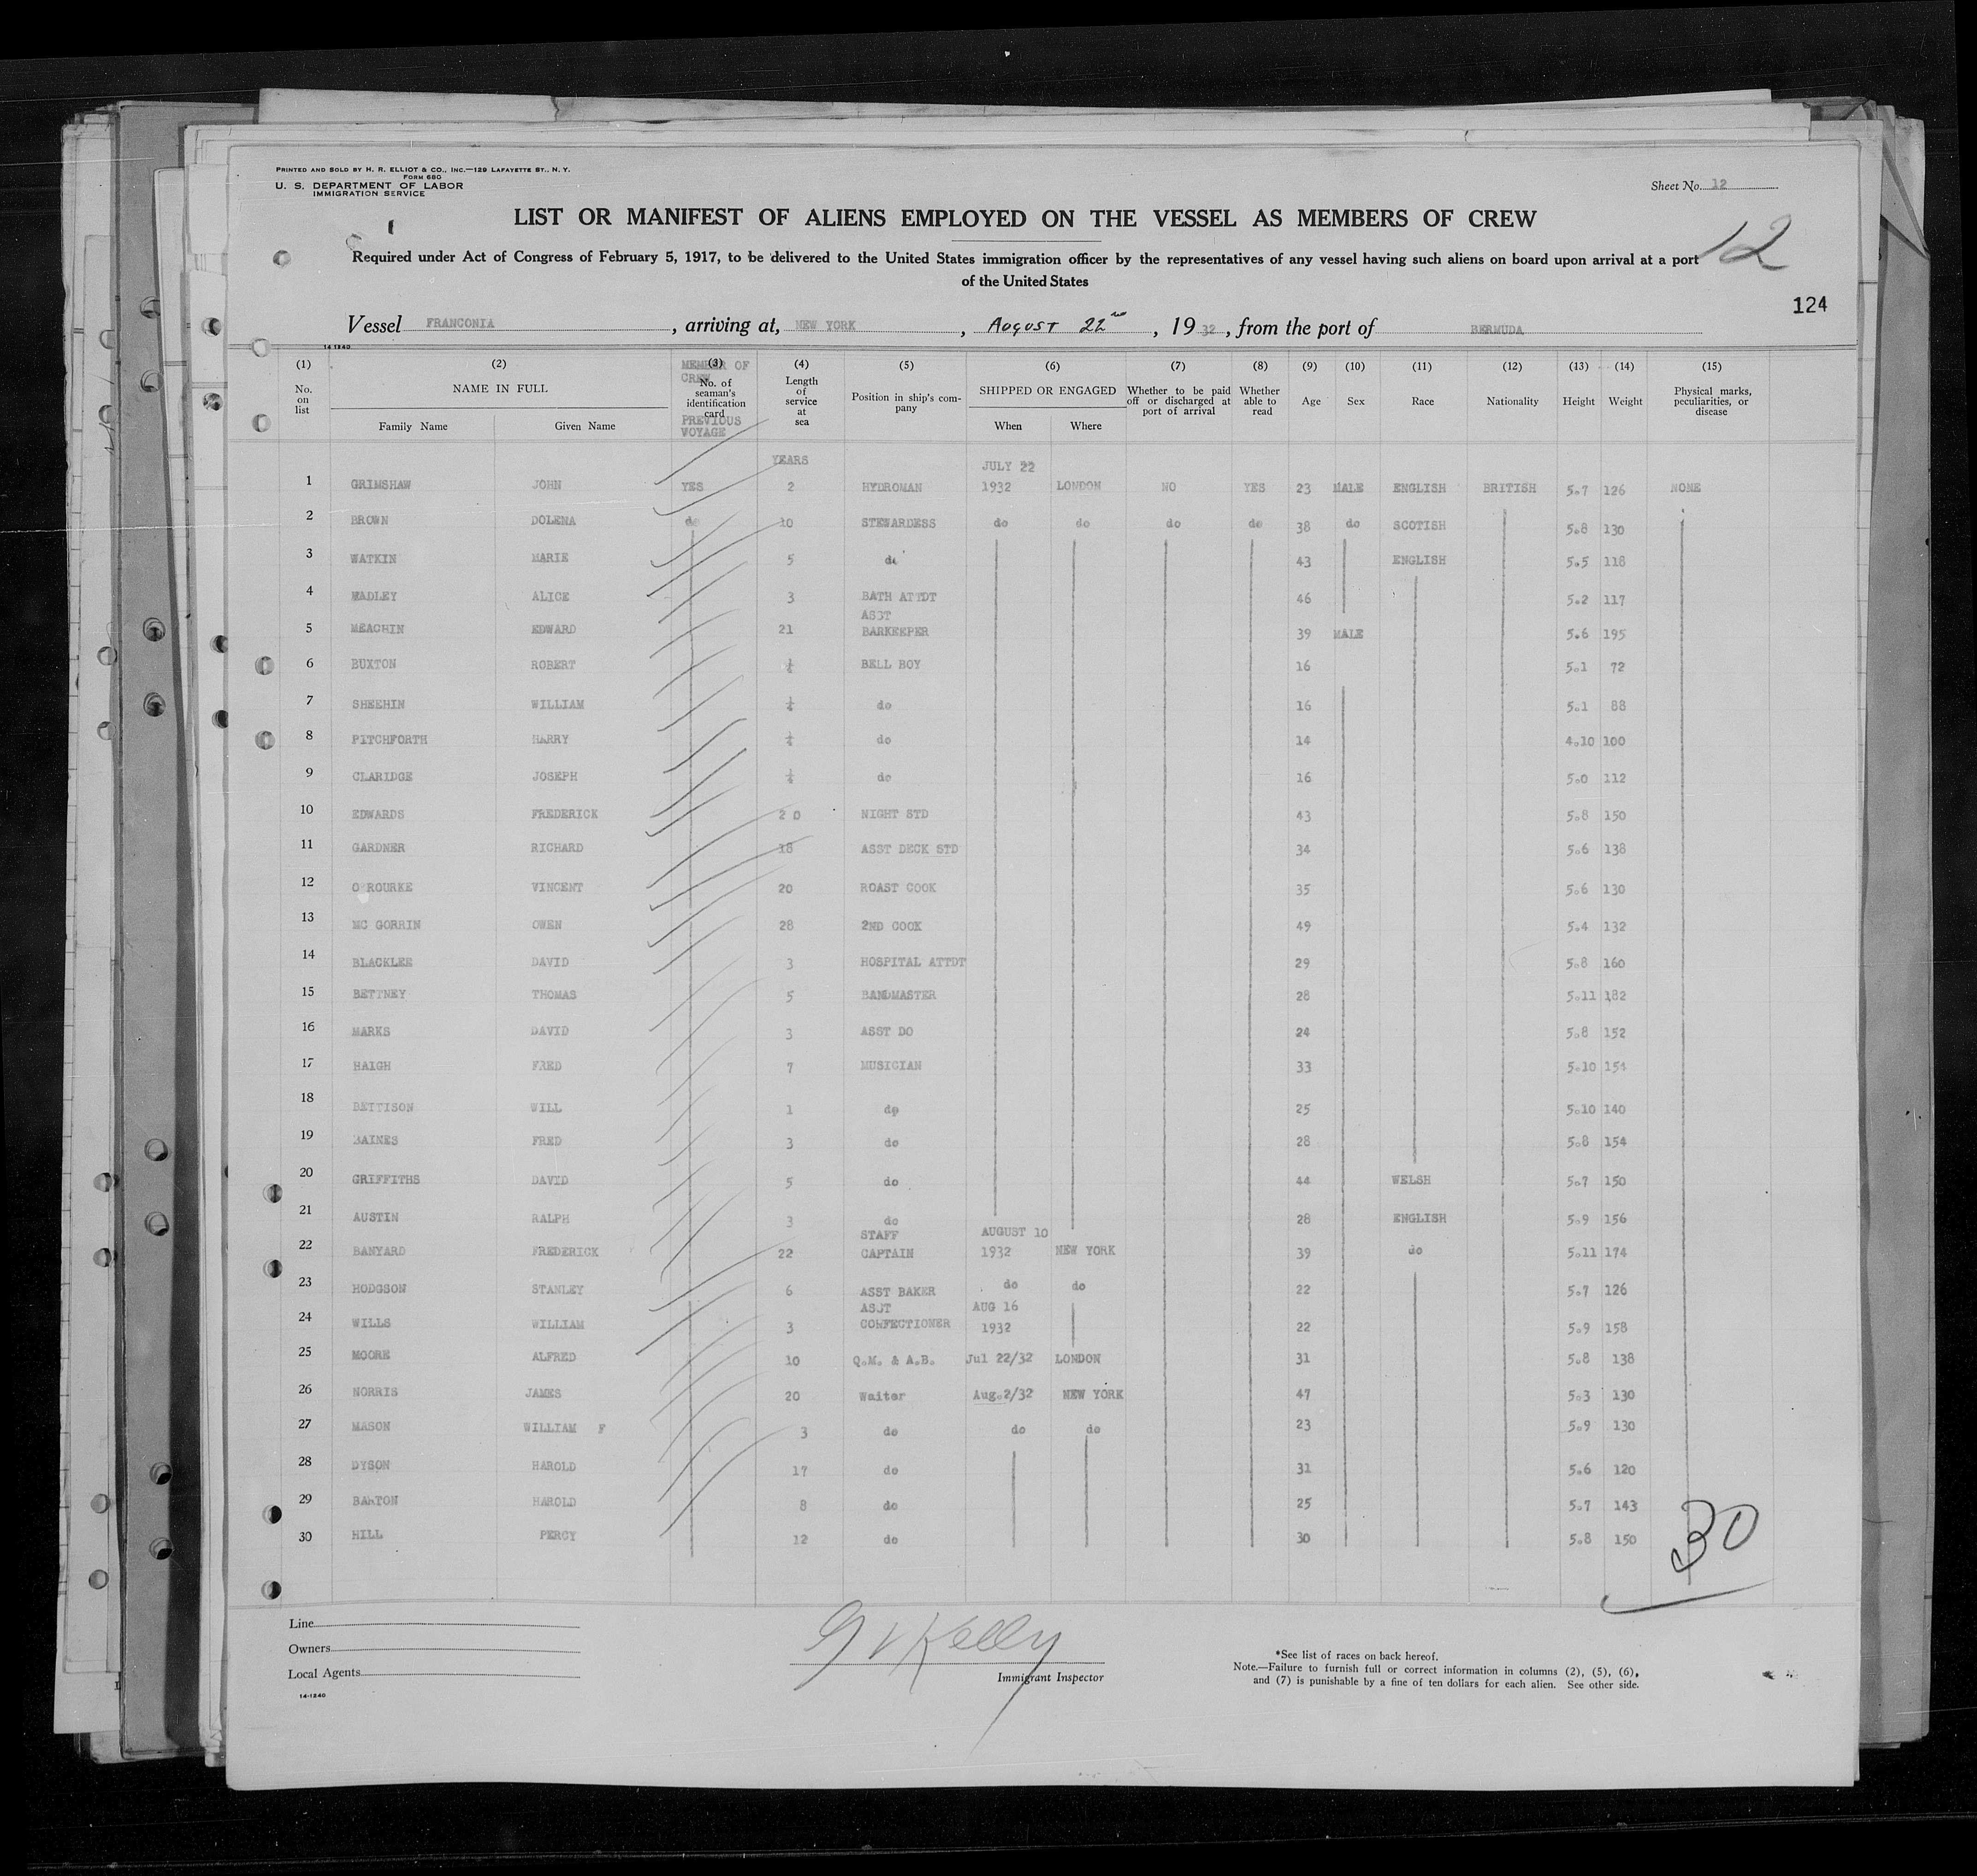 PRINTED AND SOLD BY H. R. ELLIOT & CO., INC.—129 LAFAYETTE ST., N. Y.
FORM 680
U. S. DEPARTMENT OF LABOR
IMMIGRATION SERVICE
Sheet No. 12
LIST OR MANIFEST OF ALIENS EMPLOYED ON THE VESSEL AS MEMBERS OF CREW
12
Required under Act of Congress of February 5, 1917, to be delivered to the United States immigration officer by the representatives of any vessel having such aliens on board upon arrival at a port
of the United States
124
Vessel FRANCONIA, arriving at, NEW YORK, AUGUST 22nd, 1932, from the port of BERMUDA
14-1240
(1) (2) (3) (4) (5) (6) (7) (8) (9) (10) (11) (12) (13) (14) (15)
No. on list NAME IN FULL Family Name Given Name MEMBER OF CREW No. of seaman's identification card PREVIOUS VOYAGE Length of service at sea Position in ship's company SHIPPED OR ENGAGED When Where Whether to be paid off or discharged at port of arrival Whether able to read Age Sex Race Nationality Height Weight Physical marks, peculiarities, or disease
YEARS JULY 22
1 GRIMSHAW JOHN YES 2 HYDROMAN 1932 LONDON NO YES 23 MALE ENGLISH BRITISH 5.7 126 NONE
2 BROWN DOLENA do 10 STEWARDESS do do do do 38 do SCOTISH 5.8 130
3 WATKIN MARIE 5 do 43 ENGLISH 5.5 118
4 MADLEY ALICE 3 BATH ATTDT 46 5.2 117
5 MEACHIN EDWARD 21 ASST BARKEEPER 39 MALE 5.6 195
6 BUXTON ROBERT BELL BOY 16 5.1 72
7 SHEEHIN WILLIAM do 16 5.1 88
8 PITCHFORTH HARRY do 14 4.10 100
9 CLARIDGE JOSEPH do 16 5.0 112
10 EDWARDS FREDERICK 2 0 NIGHT STD 43 5.8 150
11 GARDNER RICHARD 18 ASST DECK STD 34 5.6 138
12 O'ROURKE VINCENT 20 ROAST COOK 35 5.6 130
13 MC GORRIN OWEN 28 2ND COOK 49 5.4 132
14 BLACKLEE DAVID 3 HOSPITAL ATTDT 29 5.8 160
15 BETTNEY THOMAS 5 BANDMASTER 28 5.11 182
16 MARKS DAVID 3 ASST DO 24 5.8 152
17 HAIGH FRED 7 MUSICIAN 33 5.10 154
18 BETTISON WILL 1 do 25 5.10 140
19 BAINES FRED 3 do 28 5.8 154
20 GRIFFITHS DAVID 5 do 44 WELSH 5.7 150
21 AUSTIN RALPH 3 do 28 ENGLISH 5.9 156
22 BANYARD FREDERICK 22 STAFF CAPTAIN AUGUST 10 1932 NEW YORK 39 do 5.11 174
23 HODGSON STANLEY 6 ASST BAKER do do 22 5.7 126
24 WILLS WILLIAM 3 ASST CONFECTIONER AUG 16 1932 22 5.9 158
25 MOORE ALFRED 10 Q.M. & A.B. Jul 22/32 LONDON 31 5.8 138
26 NORRIS JAMES 20 Waiter Aug.2/32 NEW YORK 47 5.3 130
27 MASON WILLIAM F 3 do do do 23 5.9 130
28 DYSON HAROLD 17 do 31 5.6 120
29 BARTON HAROLD 8 do 25 5.7 143
30 HILL PERCY 12 do 30 5.8 150
30
Line
Owners
Local Agents
14-1240
G V Kelly
Immigrant Inspector
*See list of races on back hereof.
Note.—Failure to furnish full or correct information in columns (2), (5), (6),
and (7) is punishable by a fine of ten dollars for each alien. See other side.